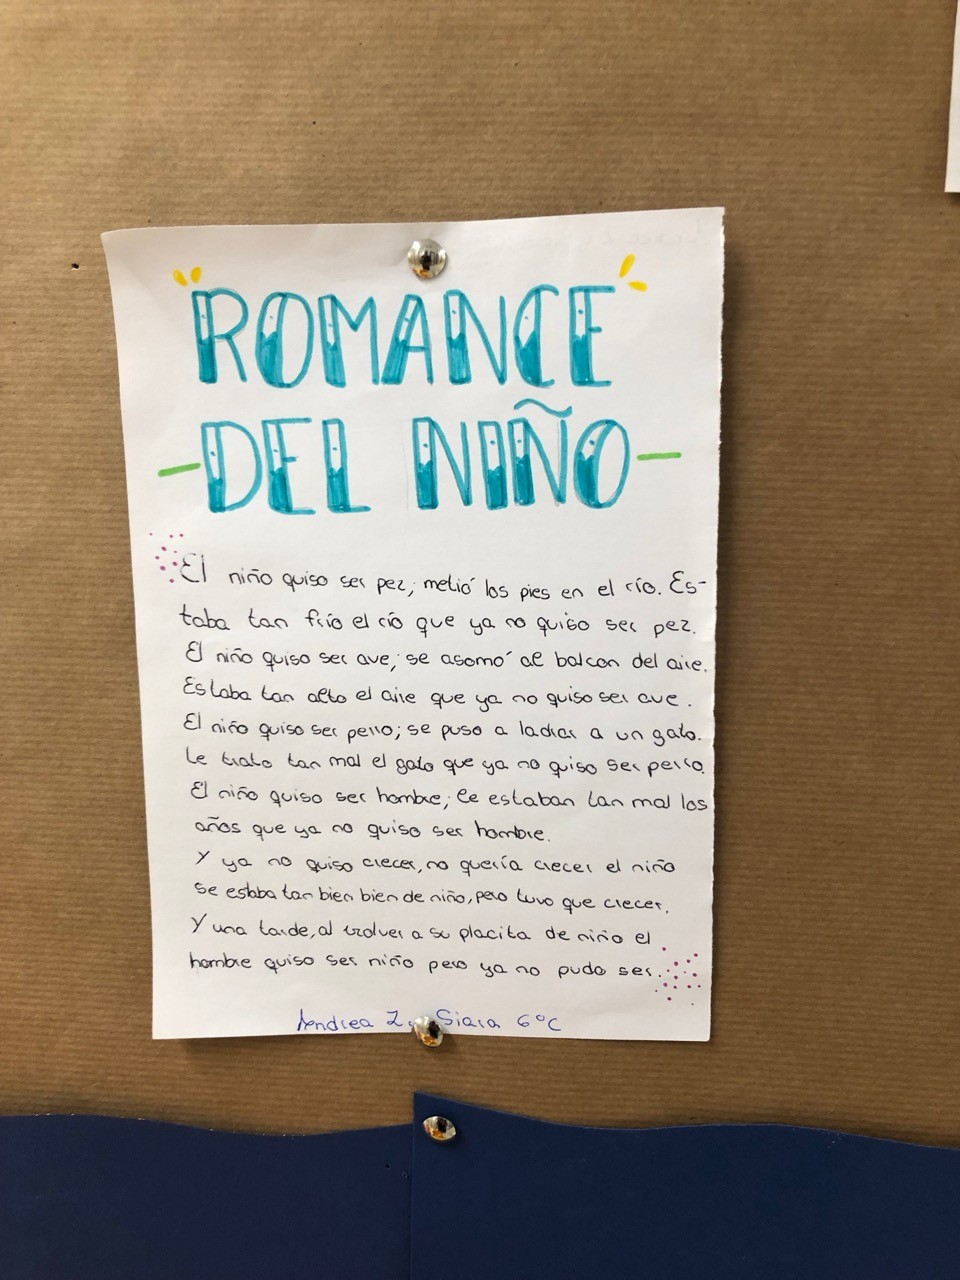 ROMANCE
-DEL NIÑO-
El niño quiso ser pez; metió los pies en el río. Es-
taba tan frío el río que ya no quiso ser pez.
El niño quiso ser ave; se asomó al balcon del aire.
Estaba tan alto el aire que ya no quiso ser ave.
El niño quiso ser perro; se puso a ladrar a un gato.
Le trato tan mal el gato que ya no quiso ser perro.
El niño quiso ser hombre; le estaban tan mal los
años que ya no quiso ser hombre.
Y ya no quiso crecer, no quería crecer el niño
se estaba tan bien bien de niño, pero tuvo que crecer.
Y una tarde, al volver a su placita de niño el
hombre quiso ser niño pero ya no pudo ser.
Andrea Z. Siara 6ºC